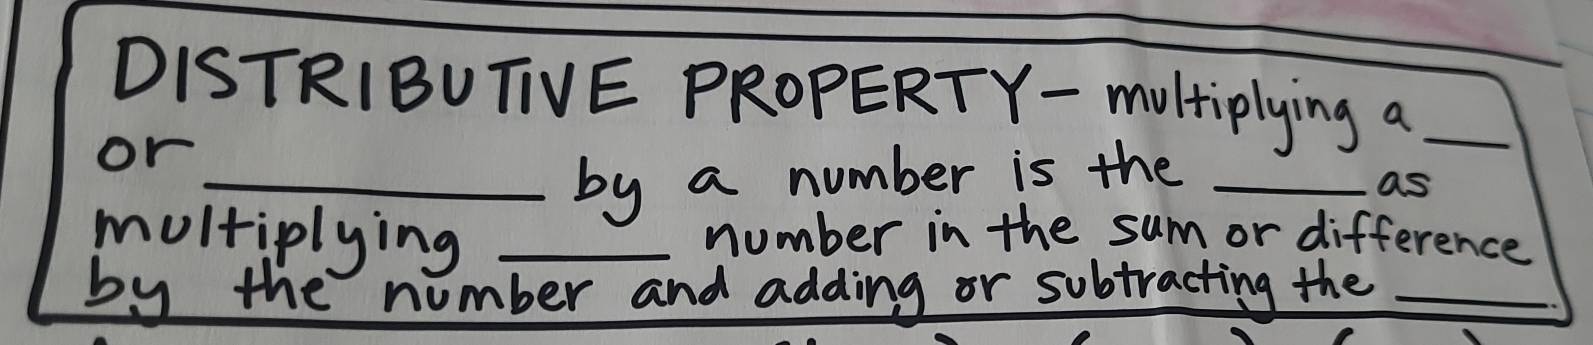 DISTRIBUTIVE PROPERTY- multiplying a ___
or ___________ by a number is the _____ as
multiplying ______ number in the sum or difference
by the number and adding or subtracting the _____.